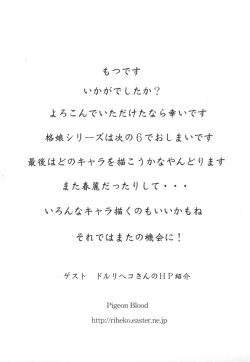 もつです
いかがでしたか？
よろこんでいただけたなら幸いです
格娘シリーズは次の６でおしまいです
最後はどのキャラを描こうかなやんどります
また春麗だったりして・・・
いろんなキャラ描くのもいいかもね
それではまたの機会に！
ゲスト　ドルリヘコさんのHP紹介
Pigeon Blood
http://riheko.easter.ne.jp